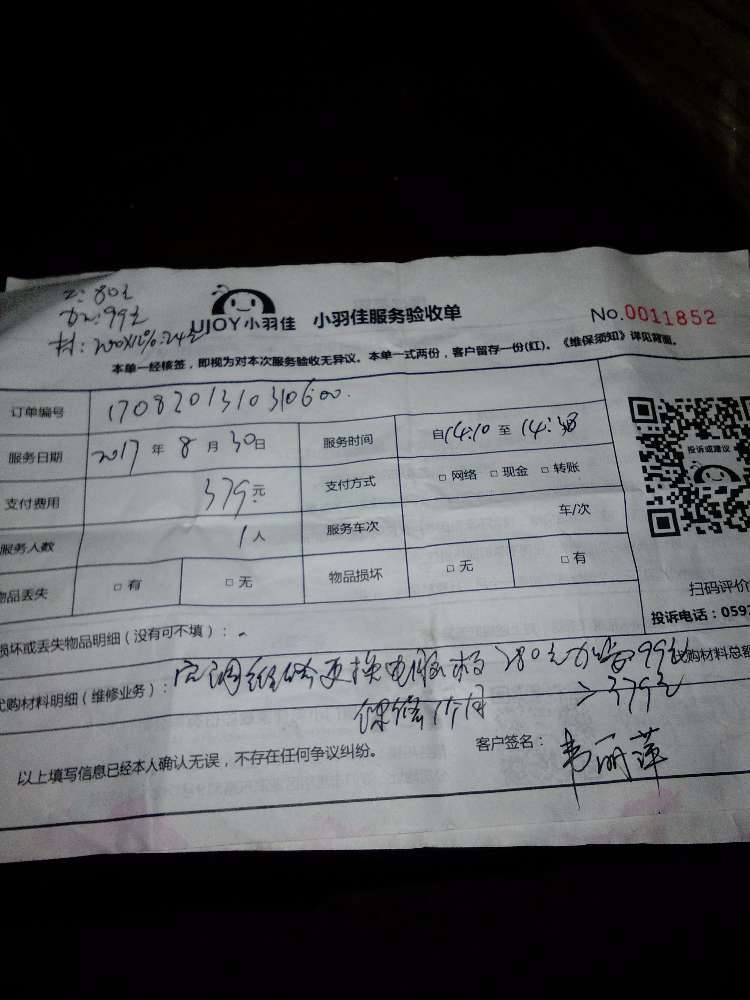 工:80元
加:99元
材:200X12%:24元
UJOY小羽佳 小羽佳服务验收单 No.0011852
本单一经核签，即视为对本次服务验收无异议。本单一式两份，客户留存一份(红)。《维保须知》详见背面。
订单编号 1708201310310600
服务日期 2017 年 8 月 30 日 服务时间 自 14:10 至 14:38
支付费用 379 元 支付方式 □ 网络 □ 现金 □ 转账
服务人数 1 人 服务车次 车/次
物品丢失 □ 有 □ 无 物品损坏 □ 无 □ 有
投诉或建议
扫码评价
投诉电话：0592
损坏或丢失物品明细（没有可不填）：
代购材料明细（维修业务）： 空调 更换电脑板 280元 加 99元 代购材料总额
保修 个月 379元
以上填写信息已经本人确认无误，不存在任何争议纠纷。 客户签名： 韦丽萍